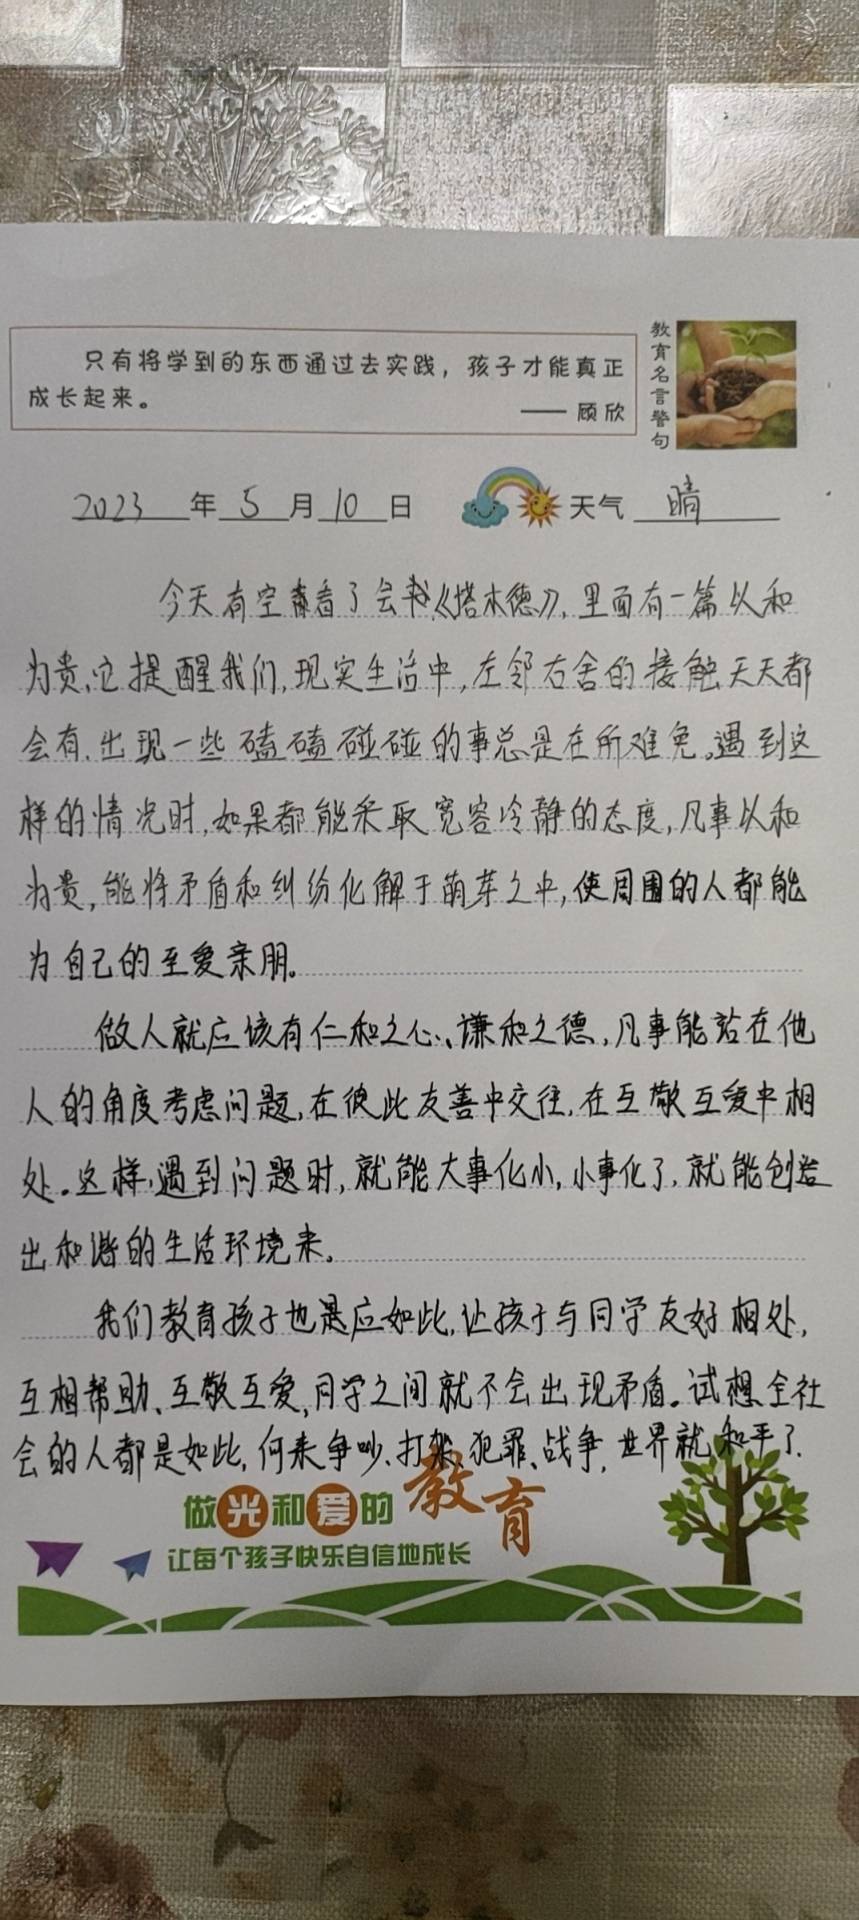 只有将学到的东西通过去实践，孩子才能真正
成长起来。
—— 顾欣
教育名言警句
2023年5月10日 天气 晴
今天有空看了会书《塔木德》，里面有一篇以和
为贵，它提醒我们，现实生活中，左邻右舍的接触天天都
会有，出现一些磕磕碰碰的事总是在所难免。遇到这
样的情况时，如果都能采取宽容冷静的态度，凡事以和
为贵，能将矛盾和纠纷化解于萌芽之中，使周围的人都能
为自己的至爱亲朋。
做人就应该有仁和之心、谦和之德，凡事能站在他
人的角度考虑问题，在彼此友善中交往，在互敬互爱中相
处。这样，遇到问题时，就能大事化小，小事化了，就能创造
出和谐的生活环境来。
我们教育孩子也是应如此，让孩子与同学友好相处，
互相帮助、互敬互爱，同学之间就不会出现矛盾。试想全社
会的人都是如此，何来争吵、打架、犯罪、战争，世界就和平了.
做光和爱的教育
让每个孩子快乐自信地成长